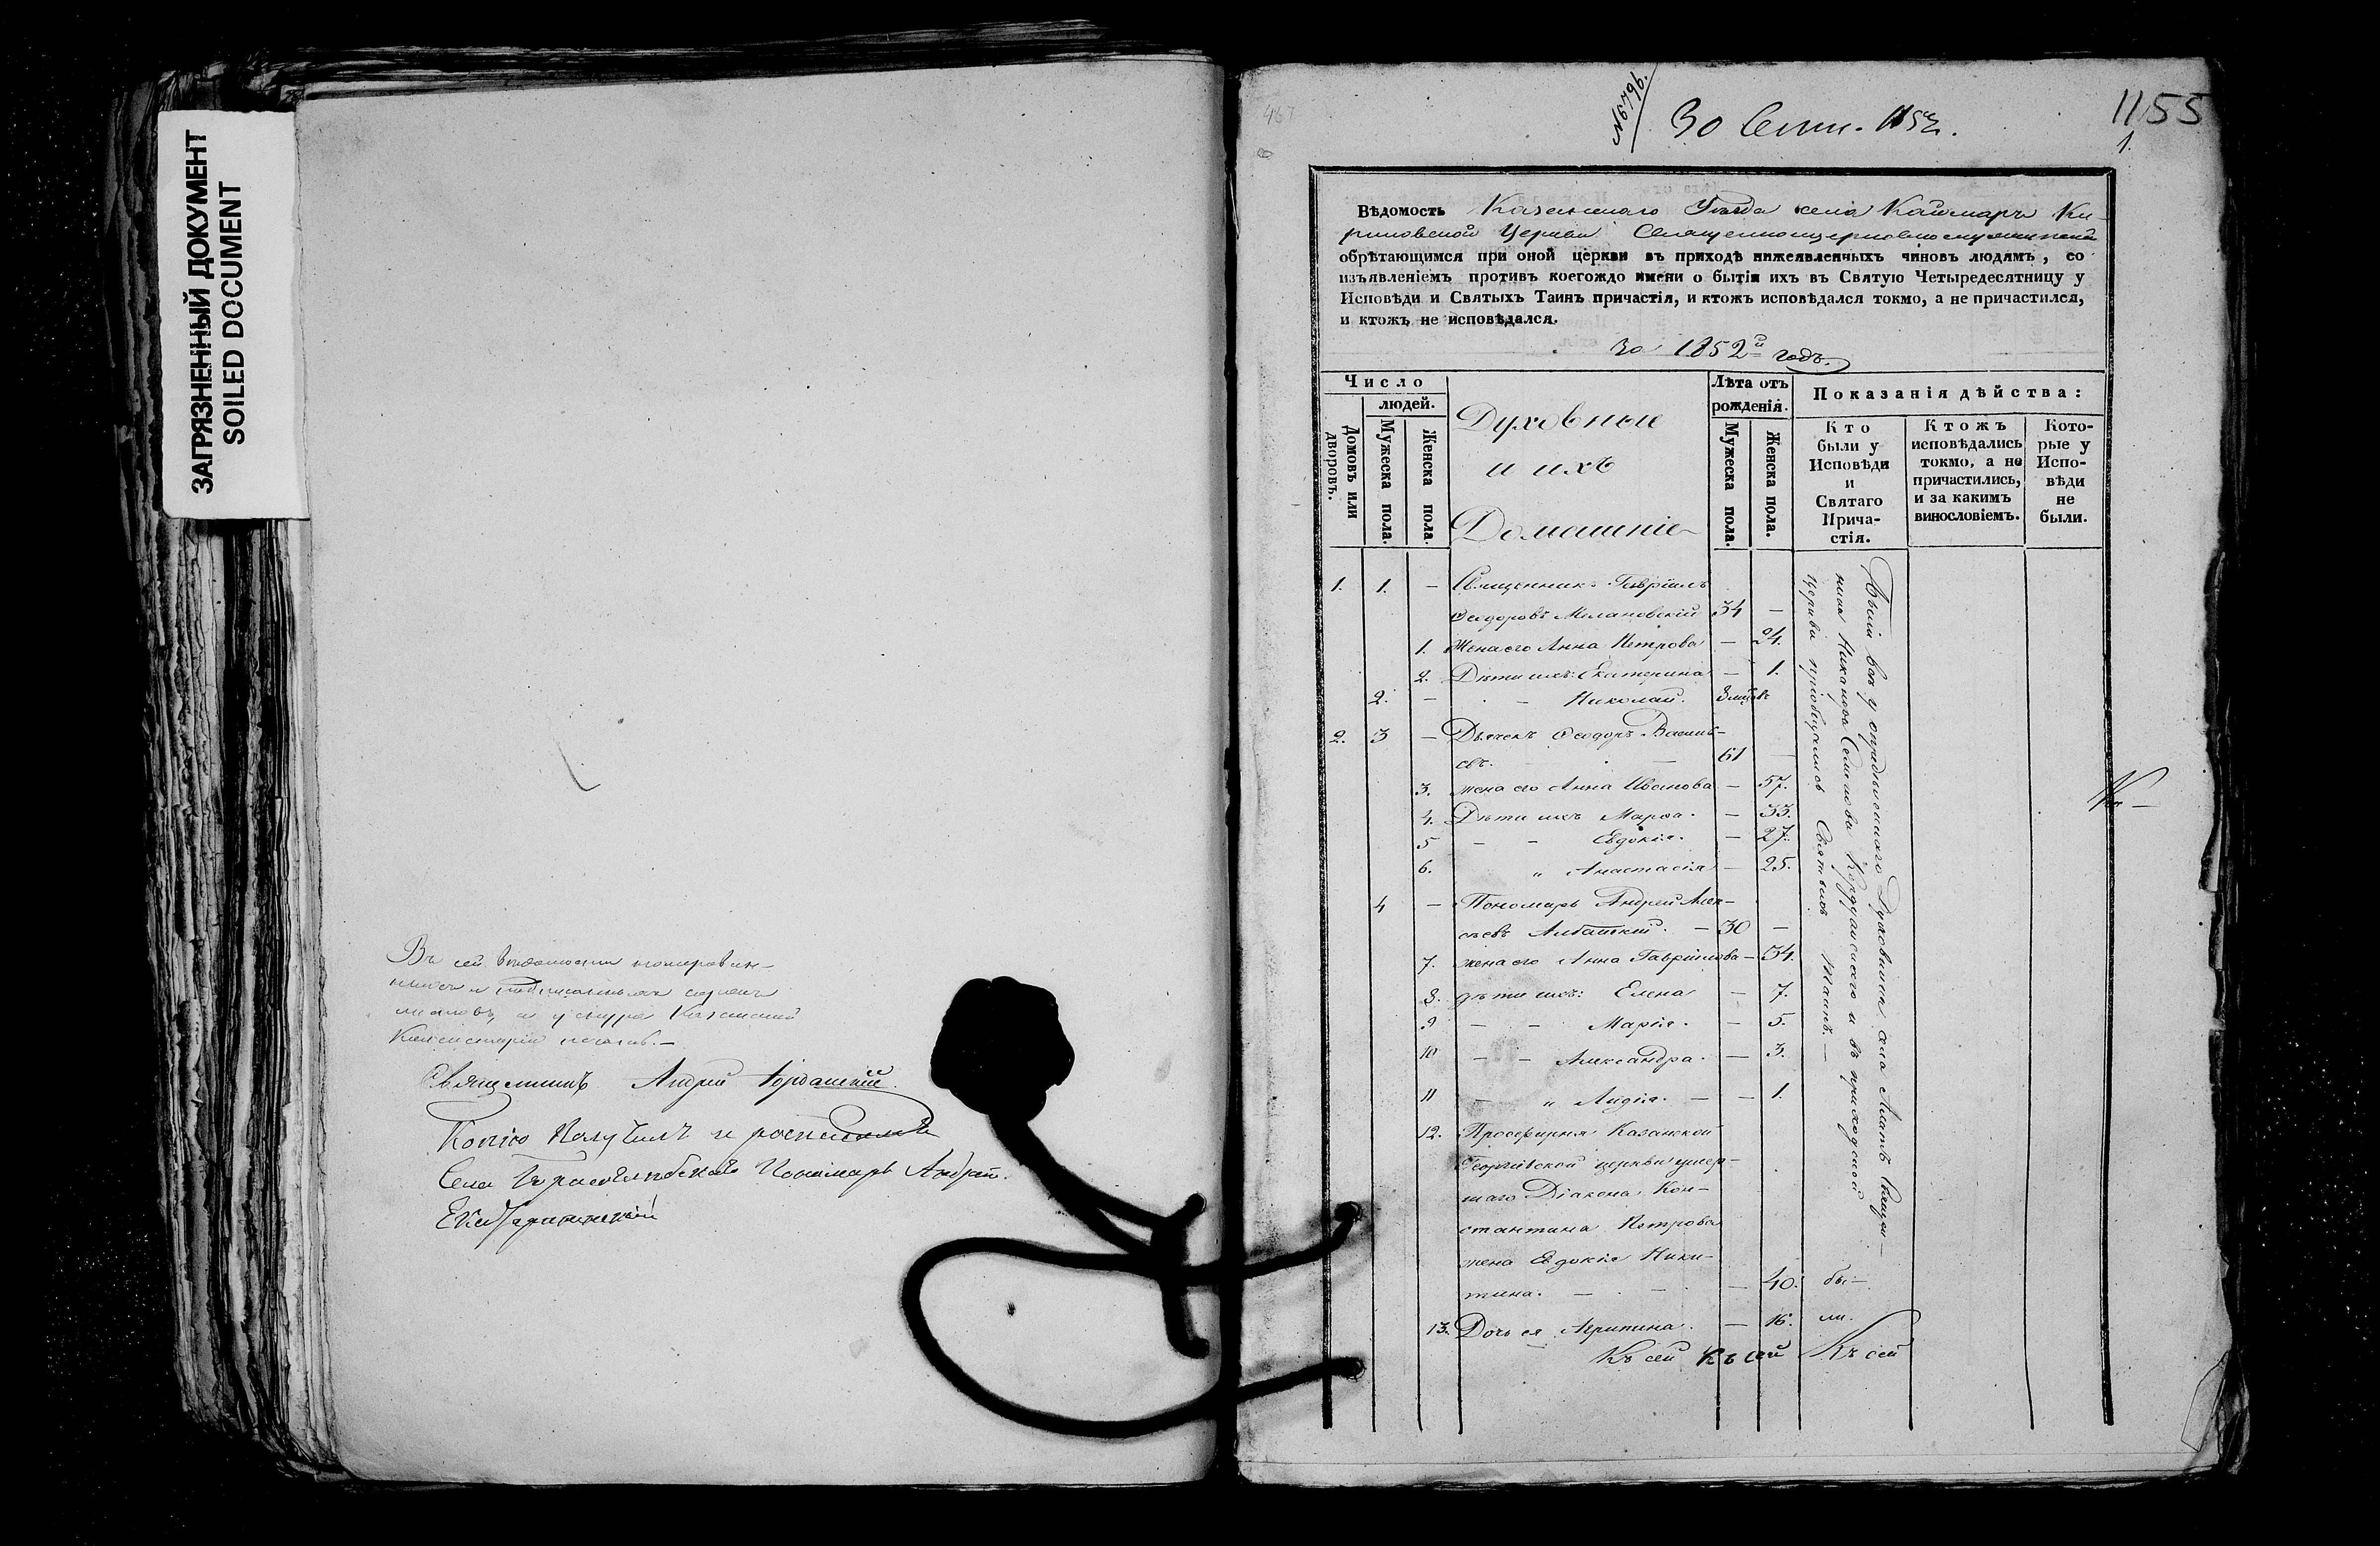 ЗАГРЯЗНЕННЫЙ ДОКУМЕНТ
SOILED DOCUMENT
Въ сей вѣдомости
Казанской
Консисторіи
Священникъ Андрей
Копію Получилъ и росписался
Села Пономарь Андрей
467
№6796.
30 Сент. 1852.
1155
1.
Вѣдомость Казанскаго Уѣзда села Каймаръ Ки-
риловской Церкви
обрѣтающимся при оной церкви въ приходѣ нижеявленныхъ чиновъ людямъ, со
изъявленіемъ противъ коегождо имени о бытіи ихъ въ Святую Четыредесятницу у
Исповѣди и Святыхъ Таинъ причастія, и ктожъ исповѣдался токмо, а не причастился,
и ктожъ не исповѣдался.
За 1852й годъ.
Число
людей.
Домовъ или дворовъ.
Мужеска пола.
Женска пола.
Духовные
и ихъ
Домашніе
Лѣта отъ
рожденія.
Мужеска пола.
Женска пола.
Показанія дѣйства:
Кто
были у
Исповѣди
и
Святаго
Прича-
стія.
Ктожъ
исповѣдались
токмо, а не
причастились,
и за какимъ
винословіемъ.
Кото-
рые у
Испо-
вѣди
не
были.
1. 1. — Священникъ Гавріилъ
Ѳеодоровъ Милановскій 34 —
1. Жена его Анна Петрова — 24.
2. Дѣти ихъ: Екатерина — 1.
2. — Николай.
2. 3 — Дьячекъ Ѳеодоръ Василь-
евъ. 61 —
3. жена его Анна Иванова — 57.
4. Дѣти ихъ Марѳа. — 33.
5 — — Евдокія. — 27.
6. „ Анастасія — 25.
4 — Пономарь Андрей Алек-
сѣевъ — 30 —
7. жена его Анна Гавріилова — 34.
8. дѣти ихъ: Елена — 7.
9 — — Марія. — 5.
10 — — Александра. — 3.
11 — „ Лидія. — — 1.
12. Просфирня Казанской
Георгіевской церкви умер-
шаго Діакона Кон-
стантина Петрова
жена Евдокія Ники-
тина. — — — 40.
13. Дочь ея Агрипина. — 16.
Были всѣ у духовника села
ника Никанора и въ приходской
церкви пріобщались Святыхъ Таинъ.—
бы-
ли.
Къ сей Къ сей Къ сей